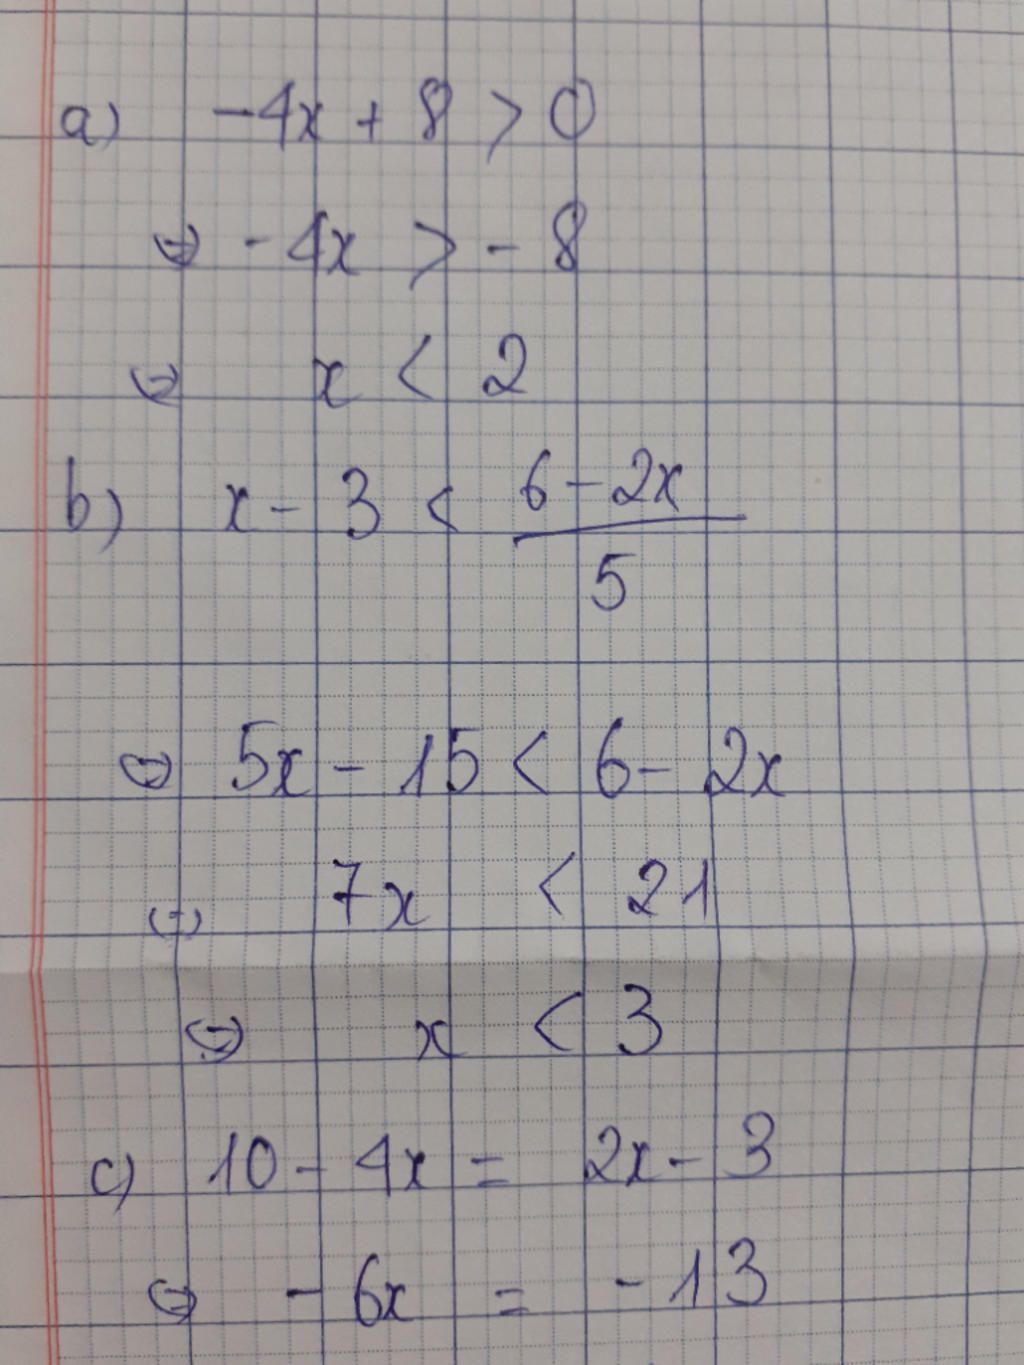 a) -4x + 8 > 0
⇔ -4x > -8
⇔ x < 2
b) x - 3 < (6 - 2x)/5
⇔ 5x - 15 < 6 - 2x
⇔ 7x < 21
⇔ x < 3
c) 10 - 4x = 2x - 3
⇔ -6x = -13